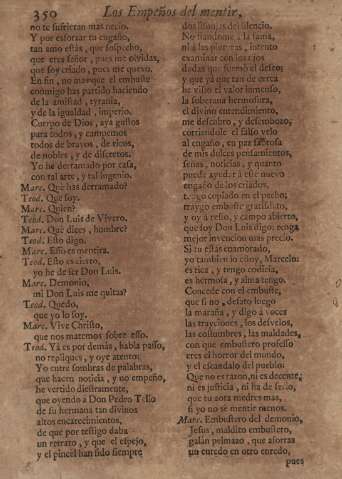 350 Los Empeños del mentir,
no te sufrieran mas recio.
Y por esforzar tu engaño,
tan amo estás, que sospecho,
que eres señor, pues me olvidas,
que soy criado, pues me quexo.
En fin, no marque el embuste
conmigo has partido haciendo
de la amistad, tyrania,
y de la igualdad, imperio.
Cuerpo de Dios, aya gustos
para todos, y campemos
todos de bravos, de ricos,
de nobles, y de discretos.
Yo he derramado por casa,
con tal arte, y tal ingenio.
Marc. Què has derramado?
Teod. Que soy.
Marc. Quien?
Teod. Don Luis de Vivero.
Marc. Què dices, hombre?
Teod. Esto digo.
Marc. Esso es mentira.
Teod. Esto es cierto,
yo he de ser Don Luis.
Marc. Demonio,
mi Don Luis me quitas?
Teod. Quedo,
que yo lo soy.
Marc. Vive Christo,
que nos matemos sobre esso.
Teod. Yà es por demàs, habla passo,
no repliques, y oye atento;
Yo entre sombras de palabras,
que hacen noticia, y no empeño,
he vertido diestramente,
que oyendo à Don Pedro Tello
de su hermana tan divinos
altos encarecimientos,
de que por testigo daba
un retrato, y que el espejo,
y el pincel han sido siempre
dos lisonjas del silencio.
No fiandome, à la fama,
ni à las pinturas, intento
examinar con los ojos
dudas que formò el deseo;
y que yà que tan de cerca
he visto el valor inmenso,
la soberana hermosura,
el divino entendimiento,
me descubro, y desembozo;
corriendole el falso velo
al engaño, en paz sabrosa
de mis dulces pensamientos,
señas, noticias, y quanto
puede ayudar à este nuevo
engaño de los criados,
traygo copiado en el pecho;
traygo embuste gratisdato,
y oy à resto, y campo abierto,
que soy Don Luis digo: tenga
mejor invencion mas precio.
Si tu estàs enamorado,
yo tambien lo estoy, Marcelo:
es rica, y tengo codicia,
es hermosa, y alma tengo.
Concede con el embuste,
que si no, desato luego
la maraña, y digo à voces
las trayciones, los desvelos,
las costumbres, las maldades,
con que embustero professo
eres el horror del mundo,
y el escandalo del pueblo:
Que no es razon, ni es decente,
ni es justicia, ni ha de serlo,
que tu aora medres mas,
si yo no sè mentir menos.
Marc. Embustero del demonio,
Jesus, maldito embustero,
galàn pelmazo, que aforras
un enredo en otro enredo,
pues